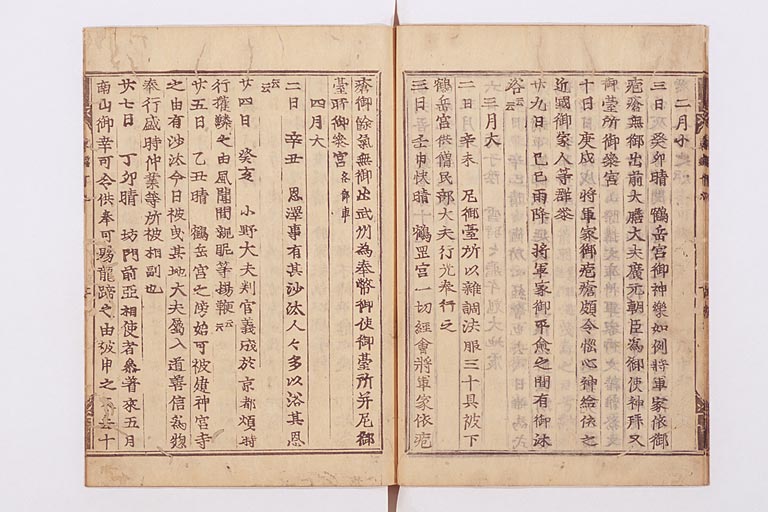 二月小
三日 癸卯晴鶴岳宮御神樂如例將軍家依御
疱瘡無御出前大膳大夫廣元朝臣為御使神拜又
御臺所御參宮
十日 庚戌將軍家御疱瘡頗令惱心神給依之
近國御家人等群參
廿九日 己巳雨降將軍家御平愈之間有御沐
浴云云
三月大
二日 辛未 尼御臺所以雜調法服三十具被下
鶴岳宮供僧民部大夫行光奉行之
三日 壬申快晴 鶴岡宮一切經會將軍家依疱
瘡御餘氣無御出武州為奉幣御使御臺所并尼御
臺所御參宮各御車
四月大
二日 辛丑 恩澤事有其沙汰人々多以浴其恩
云云
廿四日 癸亥 小野大夫判官義成於京都煩
行獲麟之由風聞間親昵等揚鞭云云
廿五日 乙丑晴 鶴岳宮之傍始可被建神宮寺
之由有沙汰今日被曳其地大夫屬入道善信為
奉行盛時仲業等所被相副也
廿七日 丁卯晴 坊門前亞相使者參著來五月
南山御幸可令供奉可賜龍蹄之由被申之